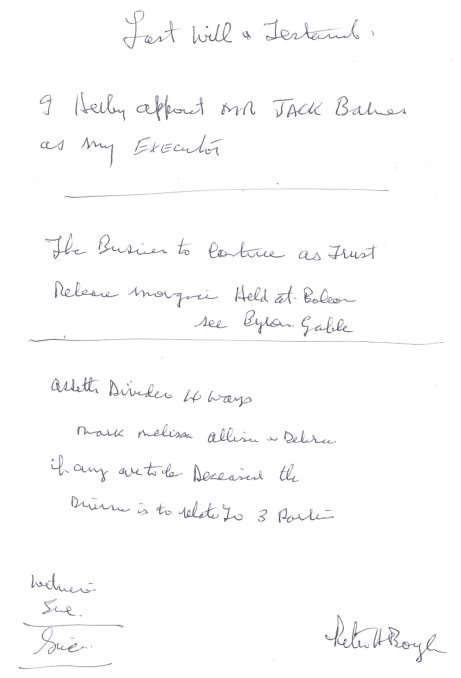 Last Will & Testamt.
I Herby appoint MR JACK Bahnes
as my EXECUtOR
The Busines to Continue as Trust
Release morgace Held at
see Byron Gable
assetts Divided 4 ways
mark melissa allison & Debra
if any are to be Deceased the
is to relate To 3 Parties
Witness
Sue.
Sue..
Peter H Boyle